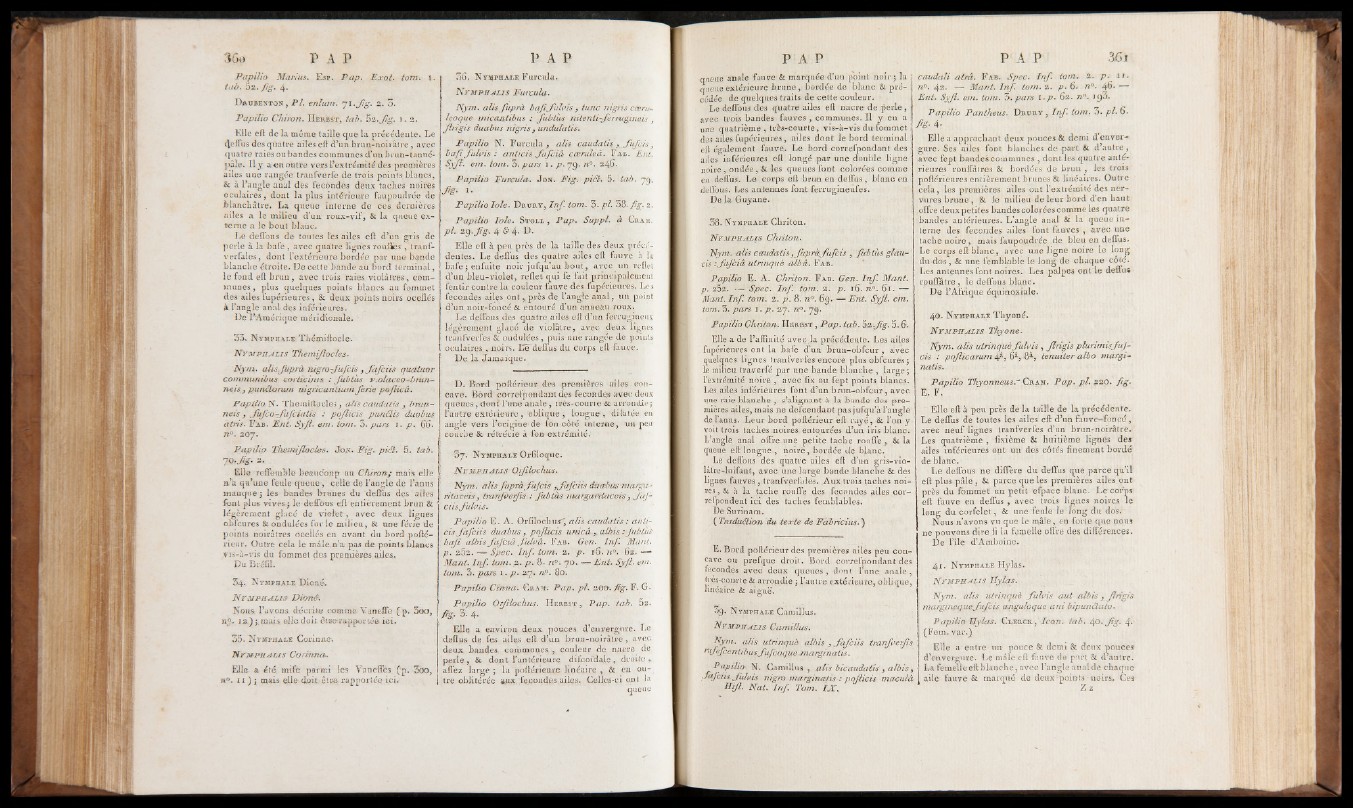 360 P A P
Papilio Marius. Esp. Pap. Exot. tom. 1.
tab. 52. fig. 4.
Daubenton, Pl. enlum. 71. fig. 2. 3.
Papilio Chiron. Herbst, tab. 52. fig. 1. 2.
Elle eſt de la même taille que la précédente. Le
deſſus des quatre ailes eſt d'un brun-noirâtre, avec
quatre raies ou bandes communes d'un brun-tanné-
pâle. Il y a en outre vers l'extrémité des premières
ailes une rangée tranſverſe de trois points blancs,
& à l'angle anal des ſecondes deux taches noires
oculaires, dont la plus intérieure ſaupoudrée de
blanchâtre. La queue interne de ces dernières
ailes a le milieu d'un roux-vif, & la queue ex-
terne a le bout blanc.
Le deſſous de toutes les ailes eſt d'un gris de
perle à la baſe, avec quatre lignes rouſſes, tranſ-
verſales, dont l'extérieure bordée par une bande
blanche étroite. De cette bande au bord terminal,
le fond eſt brun, avec trois raies violâtres, com-
munes, plus quelques points blancs au ſommet
des ailes ſupérieures, & deux points noirs ocellés
à l'angle anal des inférieures.
De l'Amérique méridionale.
33. Nymphale Thémiſtocle.
Nymphalis Themiſtocles.
Nym. alis ſuprà nigro-fuſcis, faſciis quatuor
communibus corticinis : ſubtùs violaceo-brun-
neis, punctorum nigricantium ſerie poſticâ.
Papilio N. Themiſtocles, alis caudatis, brun-
neis, fuſco-faſciatis : poſticis punctis duobus
atris. Fab. Ent. Syſt. em. tom. 3. pars 1. p. 66.
nº. 207.
Papilio Themiſtocles. Jon. Fig. pict. 5. tab.
70. fig. 2.
Elle reſſemble beaucoup au Chiron; mais elle
n'a qu'une ſeule queue, celle de l'angle de l'anus
manque; les bandes brunes du deſſus des ailes
ſont plus vives; le deſſous eſt entièrement brun &
légérement glacé de violet, avec deux lignes
obſcures & ondulées ſur le milieu, & une ſérie de
points noirâtres ocellés en avant du bord poſté-
rieur. Outre cela le mâle n'a pas de points blancs
vis-à-vis du ſommet des premières ailes.
Du Bréſil.
34. Nymphale Dioné.
Nymphalis Dioné.
Nous l'avons décrite comme Vaneſſe (p. 300,
nº. 12); mais elle doit être rapportée ici.
35. Nymphale Corinne.
Nymphalis Corinna.
Elle a été miſe parmi les Vaneſſes (p. 300,
nº. 11); mais elle doit être rapportée ici.
P A P
36. Nymphale Furcula.
Nymphalis Furcula.
Nym. alis ſuprà baſi fulvis, tunc nigris cœru-
leoque micantibus : ſubtùs nitenti-ferrugineis,
ſtrigis duabus nigris, undulatis.
Papilio N. Furcula, alis caudatis, fuſcis,
baſi fulvis : anticis faſciâ cœruleâ. Fab. Ent.
Syſt. em. tom. 3. pars 1. p. 79. nº. 246.
Papilio Furcula. Jon. Fig. pict. 5. tab. 79.
fig. 1.
Papilio Iole. Drury, Inſ. tom. 3. pl. 38. fig. 2.
Papilio Iole. Stoll, Pap. Suppl. à Cram.
pl. 29. fig. 4 & 4. D.
Elle eſt à peu près de la taille des deux précé-
dentes. Le deſſus des quatre ailes eſt fauve à la
baſe; enſuite noir juſqu'au bout, avec un reflet
d'un bleu-violet, reflet qui ſe fait principalement
ſentir contre la couleur fauve des ſupérieures. Les
ſecondes ailes ont, près de l'angle anal, un point
d'un noir-foncé & entouré d'un anneau roux.
Le deſſous des quatre ailes eſt d'un ferrugineux
légérement glacé de violâtre, avec deux lignes
tranſverſes & ondulées, puis une rangée de points
oculaires, noirs. Le deſſus du corps eſt fauve.
De la Jamaïque.
D. Bord poſtérieur des premières ailes con-
cave. Bord correſpondant des ſecondes avec deux
queues, dont l'une anale, très-courte & arrondie;
l'autre extérieure, oblique, longue, dilatée en
angle vers l'origine de ſon côté interne, un peu
courbe & rétrécie à ſon extrémité.
37. Nymphale Orſiloque.
Nymphalis Orſilochus.
Nym. alis ſuprà fuſcis, faſciis duabus marga-
ritaceis, tranſverſis : ſubtùs margaritaceis, faſ-
ciis fulvis.
Papilio E. A. Orſilochus, alis caudatis : anti-
cis faſciis duabus, poſticis unicâ, albis : ſubtùs
baſi albis faſciâ fulvâ. Fab. Gen. Inſ. Mant.
p. 262. — Spec. Inſ. tom. 2. p. 16. nº. 62. —
Mant. Inſ. tom. 2. p. 8. nº. 70. — Ent. Syſt. em.
tom. 3. pars 1. p. 27. nº. 80.
Papilio Cinna. Cram. Pap. pl. 200. fig. F. G.
Papilio Orſilochus. Herbst, Pap. tab. 52.
fig. 3. 4.
Elle a environ deux pouces d'envergure. Le
deſſus de ſes ailes eſt d'un brun-noirâtre, avec
deux bandes communes, couleur de nacre de
perle, & dont l'antérieure diſcoïdale, droite,
aſſez large; la poſtérieure linéaire, & en ou-
tre oblitérée aux ſecondes ailes. Celles-ci ont la
queue
P A P
queue anale fauve & marquée d'un point noir; la
queue extérieure brune, bordée de blanc & pré-
cédée de quelques traits de cette couleur.
Le deſſous des quatre ailes eſt nacre de perle,
avec trois bandes fauves, communes. Il y en a
une quatrième, très-courte, vis-à-vis du ſommet
des ailes ſupérieures, ailes dont le bord terminal
eſt également fauve. Le bord correſpondant des
ailes inférieures eſt longé par une double ligne
noire, ondée, & les queues ſont colorées comme
en deſſus. Le corps eſt brun en deſſus, blanc en
deſſous. Les antennes ſont ferrugineuſes.
De la Guyane.
38. Nymphale Chriton.
Nymphalis Chriton.
Nym. alis caudatis, ſuprà fuſcis, ſubtùs glau-
cis : faſciâ utrinquè albâ. Fab.
Papilio E. A. Chriton. Fab. Gen. Inſ. Mant.
p. 262. — Spec. Inſ. tom. 2. p. 16. nº. 61. —
Mant. Inſ. tom. 2. p. 8. nº. 69. — Ent. Syſt. em.
tom. 3. pars 1. p. 27. nº. 79.
Papilio Chriton. Herbst, Pap. tab. 52. fig. 5. 6.
Elle a de l'affinité avec la précédente. Les ailes
ſupérieures ont la baſe d'un brun-obſcur, avec
quelques lignes tranſverſes encore plus obſcures;
le milieu traverſé par une bande blanche, large;
l'extrémité noire, avec ſix ou ſept points blancs.
Les ailes inférieures ſont d'un brun-obſcur, avec
une raie blanche, s'alignant à la bande des pre-
mières ailes, mais ne deſcendant pas juſqu'à l'angle
de l'anus. Leur bord poſtérieur eſt rayé, & l'on y
voit trois taches noires entourées d'un iris blanc.
L'angle anal offre une petite tache rouſſe, & la
queue eſt longue, noire, bordée de blanc.
Le deſſous des quatre ailes eſt d'un gris-vio-
lâtre-luiſant, avec une large bande blanche & des
lignes fauves, tranſverſales. Aux trois taches noi-
res, & à la tache rouſſe des ſecondes ailes cor-
reſpondent ici des taches ſemblables.
De Surinam.
(Traduction du texte de Fabricius.)
E. Bord poſtérieur des premières ailes peu con-
cave ou preſque droit. Bord correſpondant des
ſecondes avec deux queues, dont l'une anale,
très-courte & arrondie; l'autre extérieure, oblique,
linéaire & aiguë.
39. Nymphale Camillus.
Nymphalis Camillus.
Nym. alis utrinquè albis, faſciis tranſverſis
rufeſcentibus fuſcoque marginatis.
Papilio N. Camillus, alis bicaudatis, albis,
faſciis fulvis nigro marginatis : poſticis maculâ
Hiſt. Nat. Inſ. Tom. IX.
P A P 361
caudali atrâ. Fab. Spec. Inſ. tom. 2. p. 11.
nº. 42. — Mant. Inſ. tom. 2. p. 6. nº. 46. —
Ent. Syſt. em. tom. 3. pars 1. p. 62. nº. 193.
Papilio Pantheus. Drury, Inſ. tom. 3. pl. 6.
fig. 4.
Elle a approchant deux pouces & demi d'enver-
gure. Ses ailes ſont blanches de part & d'autre,
avec ſept bandes communes, dont les quatre anté-
rieures rouſſâtres & bordées de brun, les trois
poſtérieures entièrement brunes & linéaires. Outre
cela, les premières ailes ont l'extrémité des ner-
vures brune, & le milieu de leur bord d'en haut
offre deux petites bandes colorées comme les quatre
bandes antérieures. L'angle anal & la queue in-
terne des ſecondes ailes ſont fauves, avec une
tache noire, mais ſaupoudrée de bleu en deſſus.
Le corps eſt blanc, avec une ligne noire le long
du dos, & une ſemblable le long de chaque côté.
Les antennes ſont noires. Les palpes ont le deſſus
rouſſâtre, le deſſous blanc.
De l'Afrique équinoxiale.
40. Nymphale Thyoné.
Nymphalis Thyone.
Nym. alis utrinquè fulvis, ſtrigis plurimis fuſ-
cis : poſticarum 4â, 6â, 8â, tenuiter albo margi-
natis.
Papilio Thyonneus. Cram. Pap. pl. 220. fig.
E. F.
Elle eſt à peu près de la taille de la précédente.
Le deſſus de toutes les ailes eſt d'un fauve-foncé,
avec neuf lignes tranſverſes d'un brun-noirâtre.
Les quatrième, ſixième & huitième lignes des
ailes inférieures ont un des côtés finement bordé
de blanc.
Le deſſous ne diffère du deſſus que parce qu'il
eſt plus pâle, & parce que les premières ailes ont
près du ſommet un petit eſpace blanc. Le corps
eſt fauve en deſſus, avec trois lignes noires le
long du corſelet, & une ſeule le long du dos.
Nous n'avons vu que le mâle, en ſorte que nous
ne pouvons dire ſi la femelle offre des différences.
De l'île d'Amboine.
41. Nymphale Hylas.
Nymphalis Hylas.
Nym. alis utrinquè fulvis aut albis, ſtrigis
margineque fuſcis : angulo que ani bipunctato.
Papilio Hylas. Clerck, Icon. tab. 40. fig. 4.
(Fœm. var.)
Elle a entre un pouce & demi & deux pouces
d'envergure. Le mâle eſt fauve de part & d'autre.
La femelle eſt blanche, avec l'angle anal de chaque
aile fauve & marqué de deux points noirs. Ces
Z z